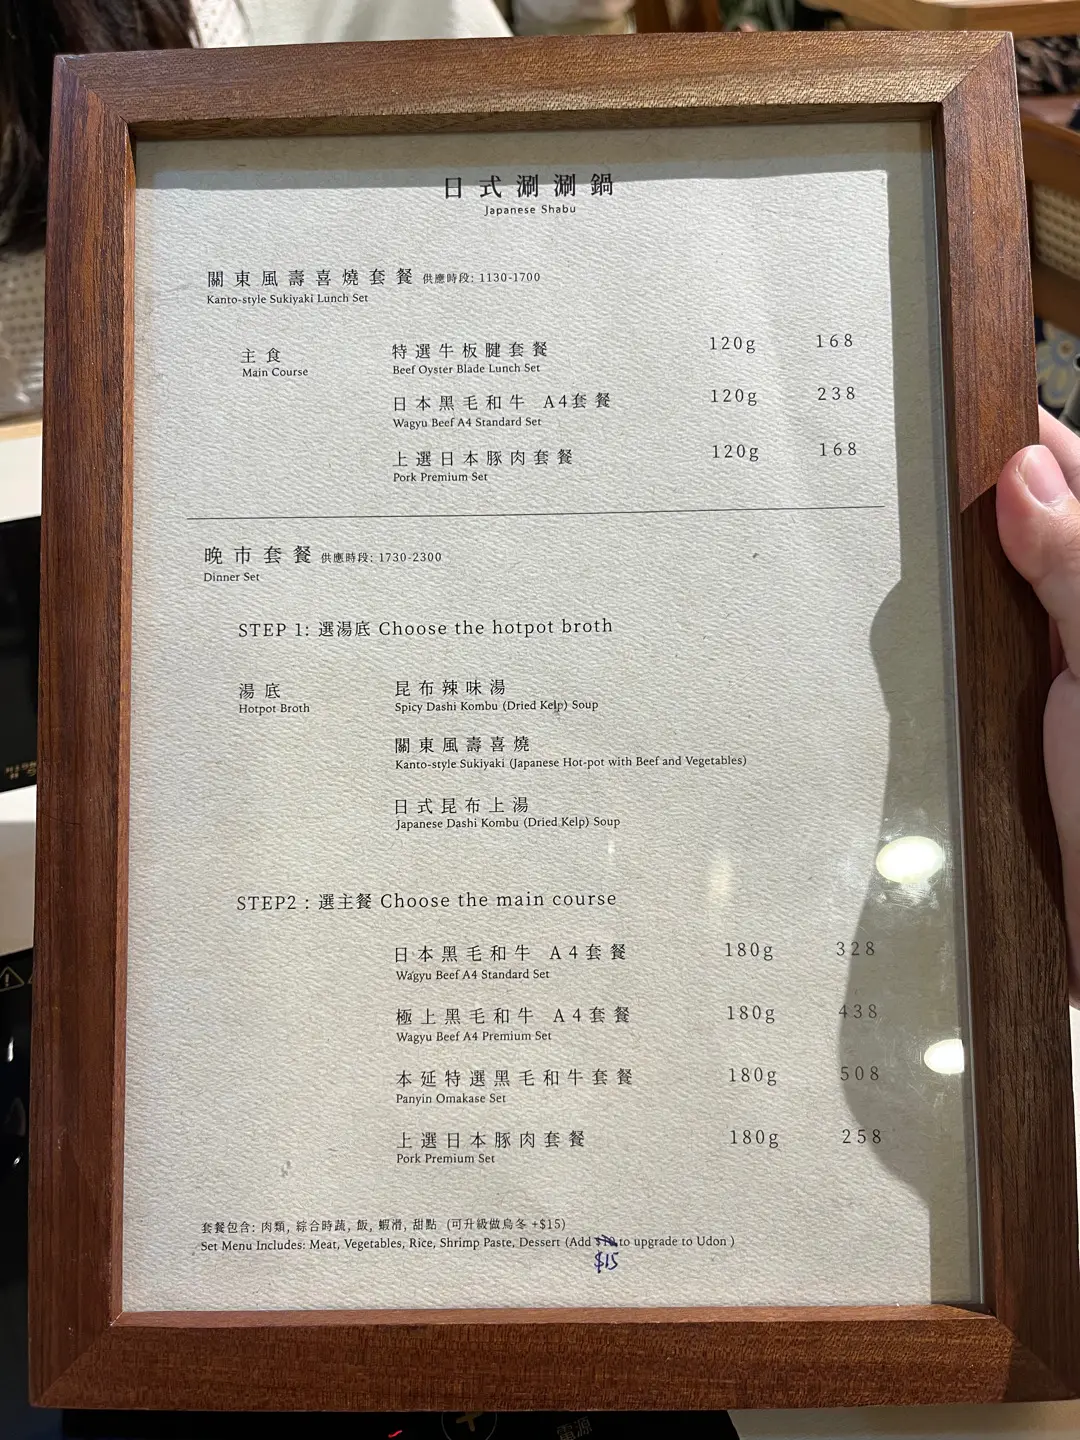 日式涮涮鍋
Japanese Shabu
關東風壽喜燒套餐 供應時段: 1130-1700
Kanto-style Sukiyaki Lunch Set
主食 特選牛板腱套餐 120g 168
Main Course Beef Oyster Blade Lunch Set
日本黑毛和牛 A4套餐 120g 238
Wagyu Beef A4 Standard Set
上選日本豚肉套餐 120g 168
Pork Premium Set
晚市套餐 供應時段: 1730-2300
Dinner Set
STEP 1: 選湯底 Choose the hotpot broth
湯底 昆布辣味湯
Hotpot Broth Spicy Dashi Kombu (Dried Kelp) Soup
關東風壽喜燒
Kanto-style Sukiyaki (Japanese Hot-pot with Beef and Vegetables)
日式昆布上湯
Japanese Dashi Kombu (Dried Kelp) Soup
STEP2 : 選主餐 Choose the main course
日本黑毛和牛 A4套餐 180g 328
Wagyu Beef A4 Standard Set
極上黑毛和牛 A4套餐 180g 438
Wagyu Beef A4 Premium Set
本延特選黑毛和牛套餐 180g 508
Panyin Omakase Set
上選日本豚肉套餐 180g 258
Pork Premium Set
套餐包含: 肉類, 綜合時蔬, 飯, 蝦滑, 甜點 (可升級做烏冬 +$15)
Set Menu Includes: Meat, Vegetables, Rice, Shrimp Paste, Dessert (Add $10 to upgrade to Udon )
$15
電源